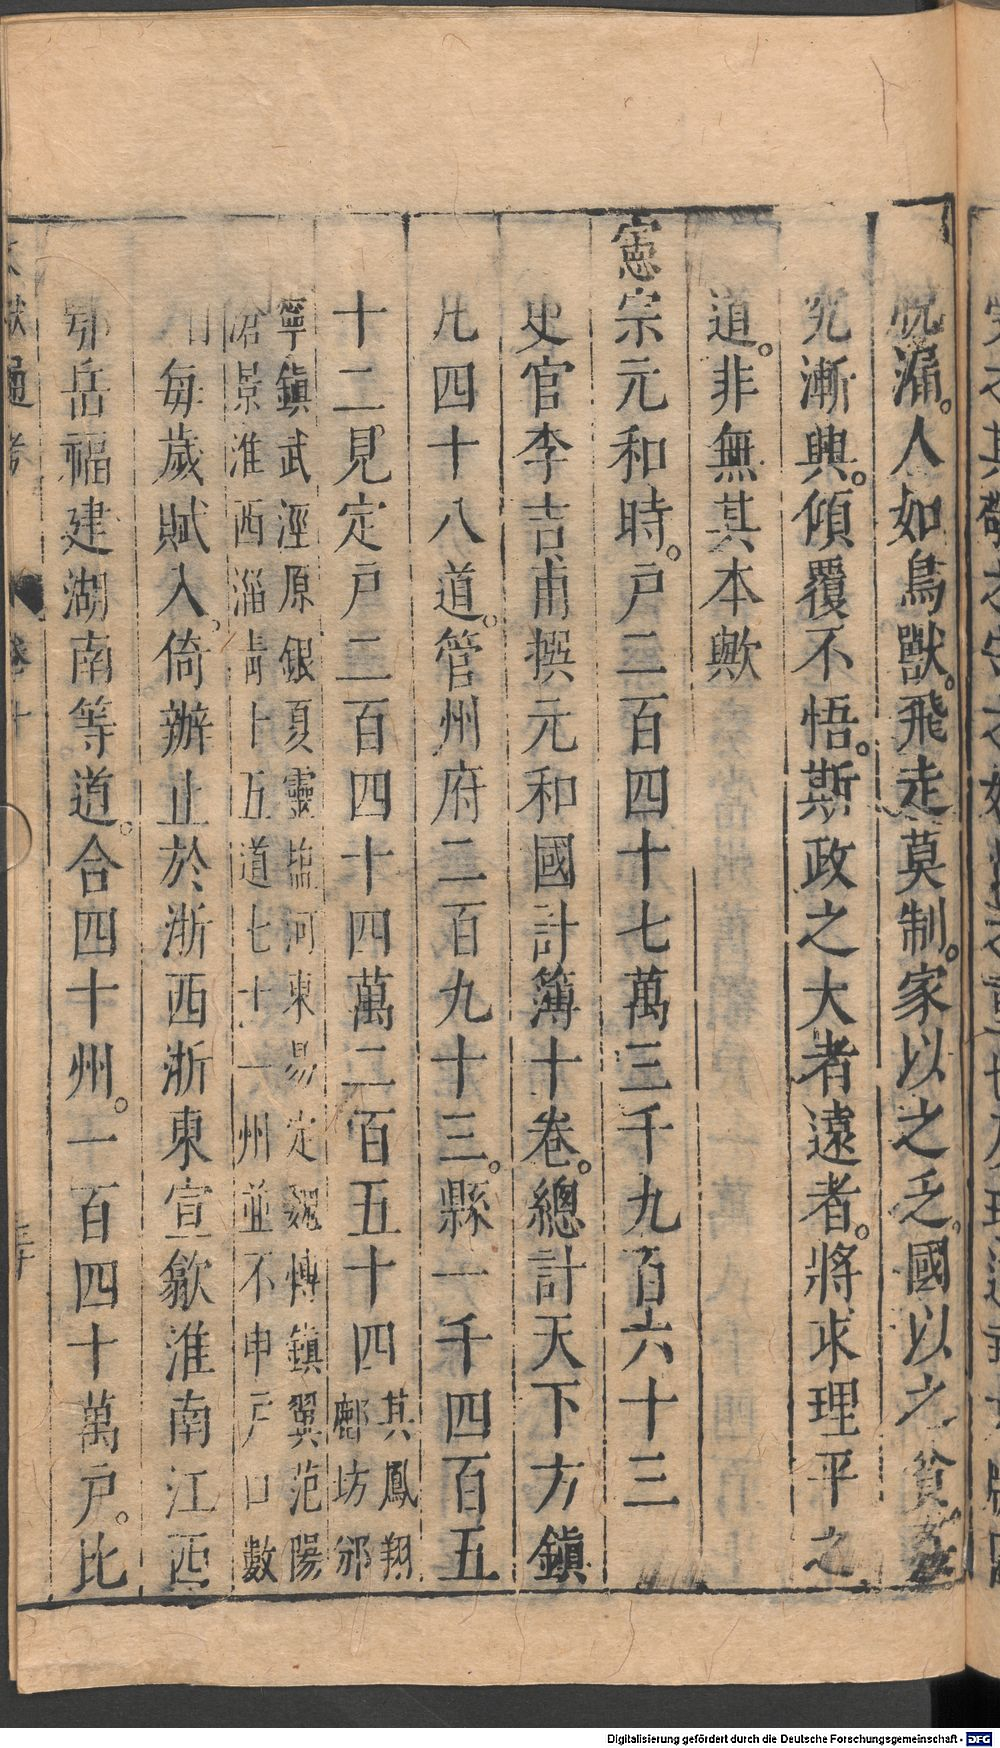 脱漏。人如鳥獸。飛走莫制。家以之乏。國以之貧。姦
宄漸興。傾覆不悟。斯政之大者遠者。將求理平之
道。非無其本歟
憲宗元和時。户二百四十七萬三千九百六十三
史官李吉甫撰元和國計簿十卷。總計天下方鎮
凡四十八道。管州府二百九十三。縣一千四百五
十二見定户二百四十四萬二百五十四其鳳翔鄜坊邠
寧鎮武涇原銀夏靈鹽河東易定魏博鎮冀范陽
滄景淮西淄青十五道七十一州並不申户口數
每歲賦入。倚辦止於浙西浙東宣歙淮南江西
鄂岳福建湖南等道。合四十州。一百四十萬户。比
獻通考
卷十
Digitalisierung gefördert durch die Deutsche Forschungsgemeinschaft - DFG